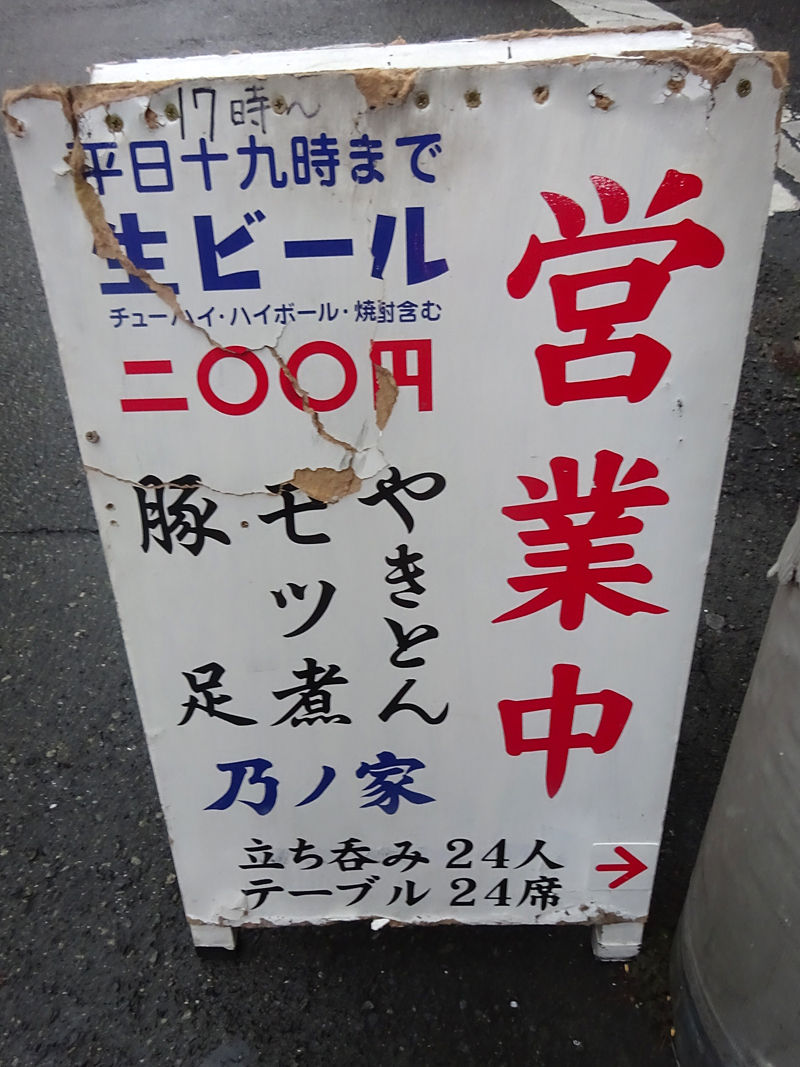 営業中
17時〜
平日十九時まで
生ビール
チューハイ・ハイボール・焼酎含む
二〇〇円
やきとん
モツ煮
豚足
乃ノ家
立ち呑み 24人
テーブル 24席